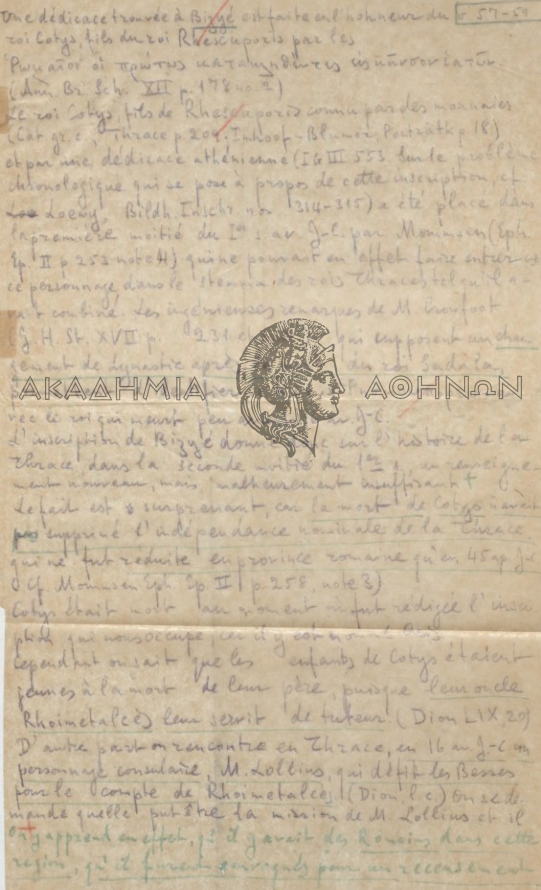 Une dédicace trouvée à Bizyé est faite en l'honneur du σ 57-59
roi Cotys, fils du roi Rhescuporis par les
Ρωμαῖοι οἱ πρώτως
(Ann. Br. Sch. XII p. 178 no 2)
Le roi Cotys, fils de Rhescuporis connu par des monnaies
(Cat. gr. c. Thrace p. 209. Imhoof-Blumer, Porträtk p. 18)
et par une dédicace athénienne (IG III 553. Sur le problème
chronologique qui se pose à propos de cette inscription, cf
Loewy, Bildh. Inschr. nos 314-315) a été placé dans
la première moitié du Ier s. av. J-C. par Mommsen (Eph.
Ep. II p 253 note 4) qui ne pouvant en effet faire entrer
ce personnage dans le stemma des rois Thraces tel qu'il a-
vait combiné. Les ingénieuses remarques de M. Crowfoot
(J. H. St. XVII p. 231 qui supposent un chan
gement de dynastie après du roi Sadala
ΑΚΑΔΗΜΙΑ ΑΘΗΝΩΝ
vec le roi qui meurt peu J-C.
L'inscription de Bizyé donne sur l'histoire de la
Thrace, dans la seconde moitié du 1er s. un renseigne
ment nouveau, mais malheureusement insuffisant
Le fait est surprenant, car la mort de Cotys n'avait
pas supprimé l'indépendance nominale de la Thrace
qui ne fut réduite en province romaine qu'en 45 ap. J-C
(Cf. Mommsen Eph. Ep. II p. 258, note 3)
Cotys était mort au moment où fut rédigée l'inscri
ption qui nous occupe, car il y est nommé
Cependant on sait que les enfants de Cotys étaient
jeunes à la mort de leur père, puisque leur oncle
Rhoimetalcès leur servit de tuteur (Dion LIX, 20)
D'autre part on rencontre en Thrace, en 16 av. J-C un
personnage consulaire, M. Lollius, qui défit les Besses
pour le compte de Rhoimetalcès (Dion, l.c) On se de
mande quelle put être la mission de M. Lollius et il
On y apprend en effet, qu'il y avait des Romains dans cette
région, qu'ils furent convoqués pour un recensement